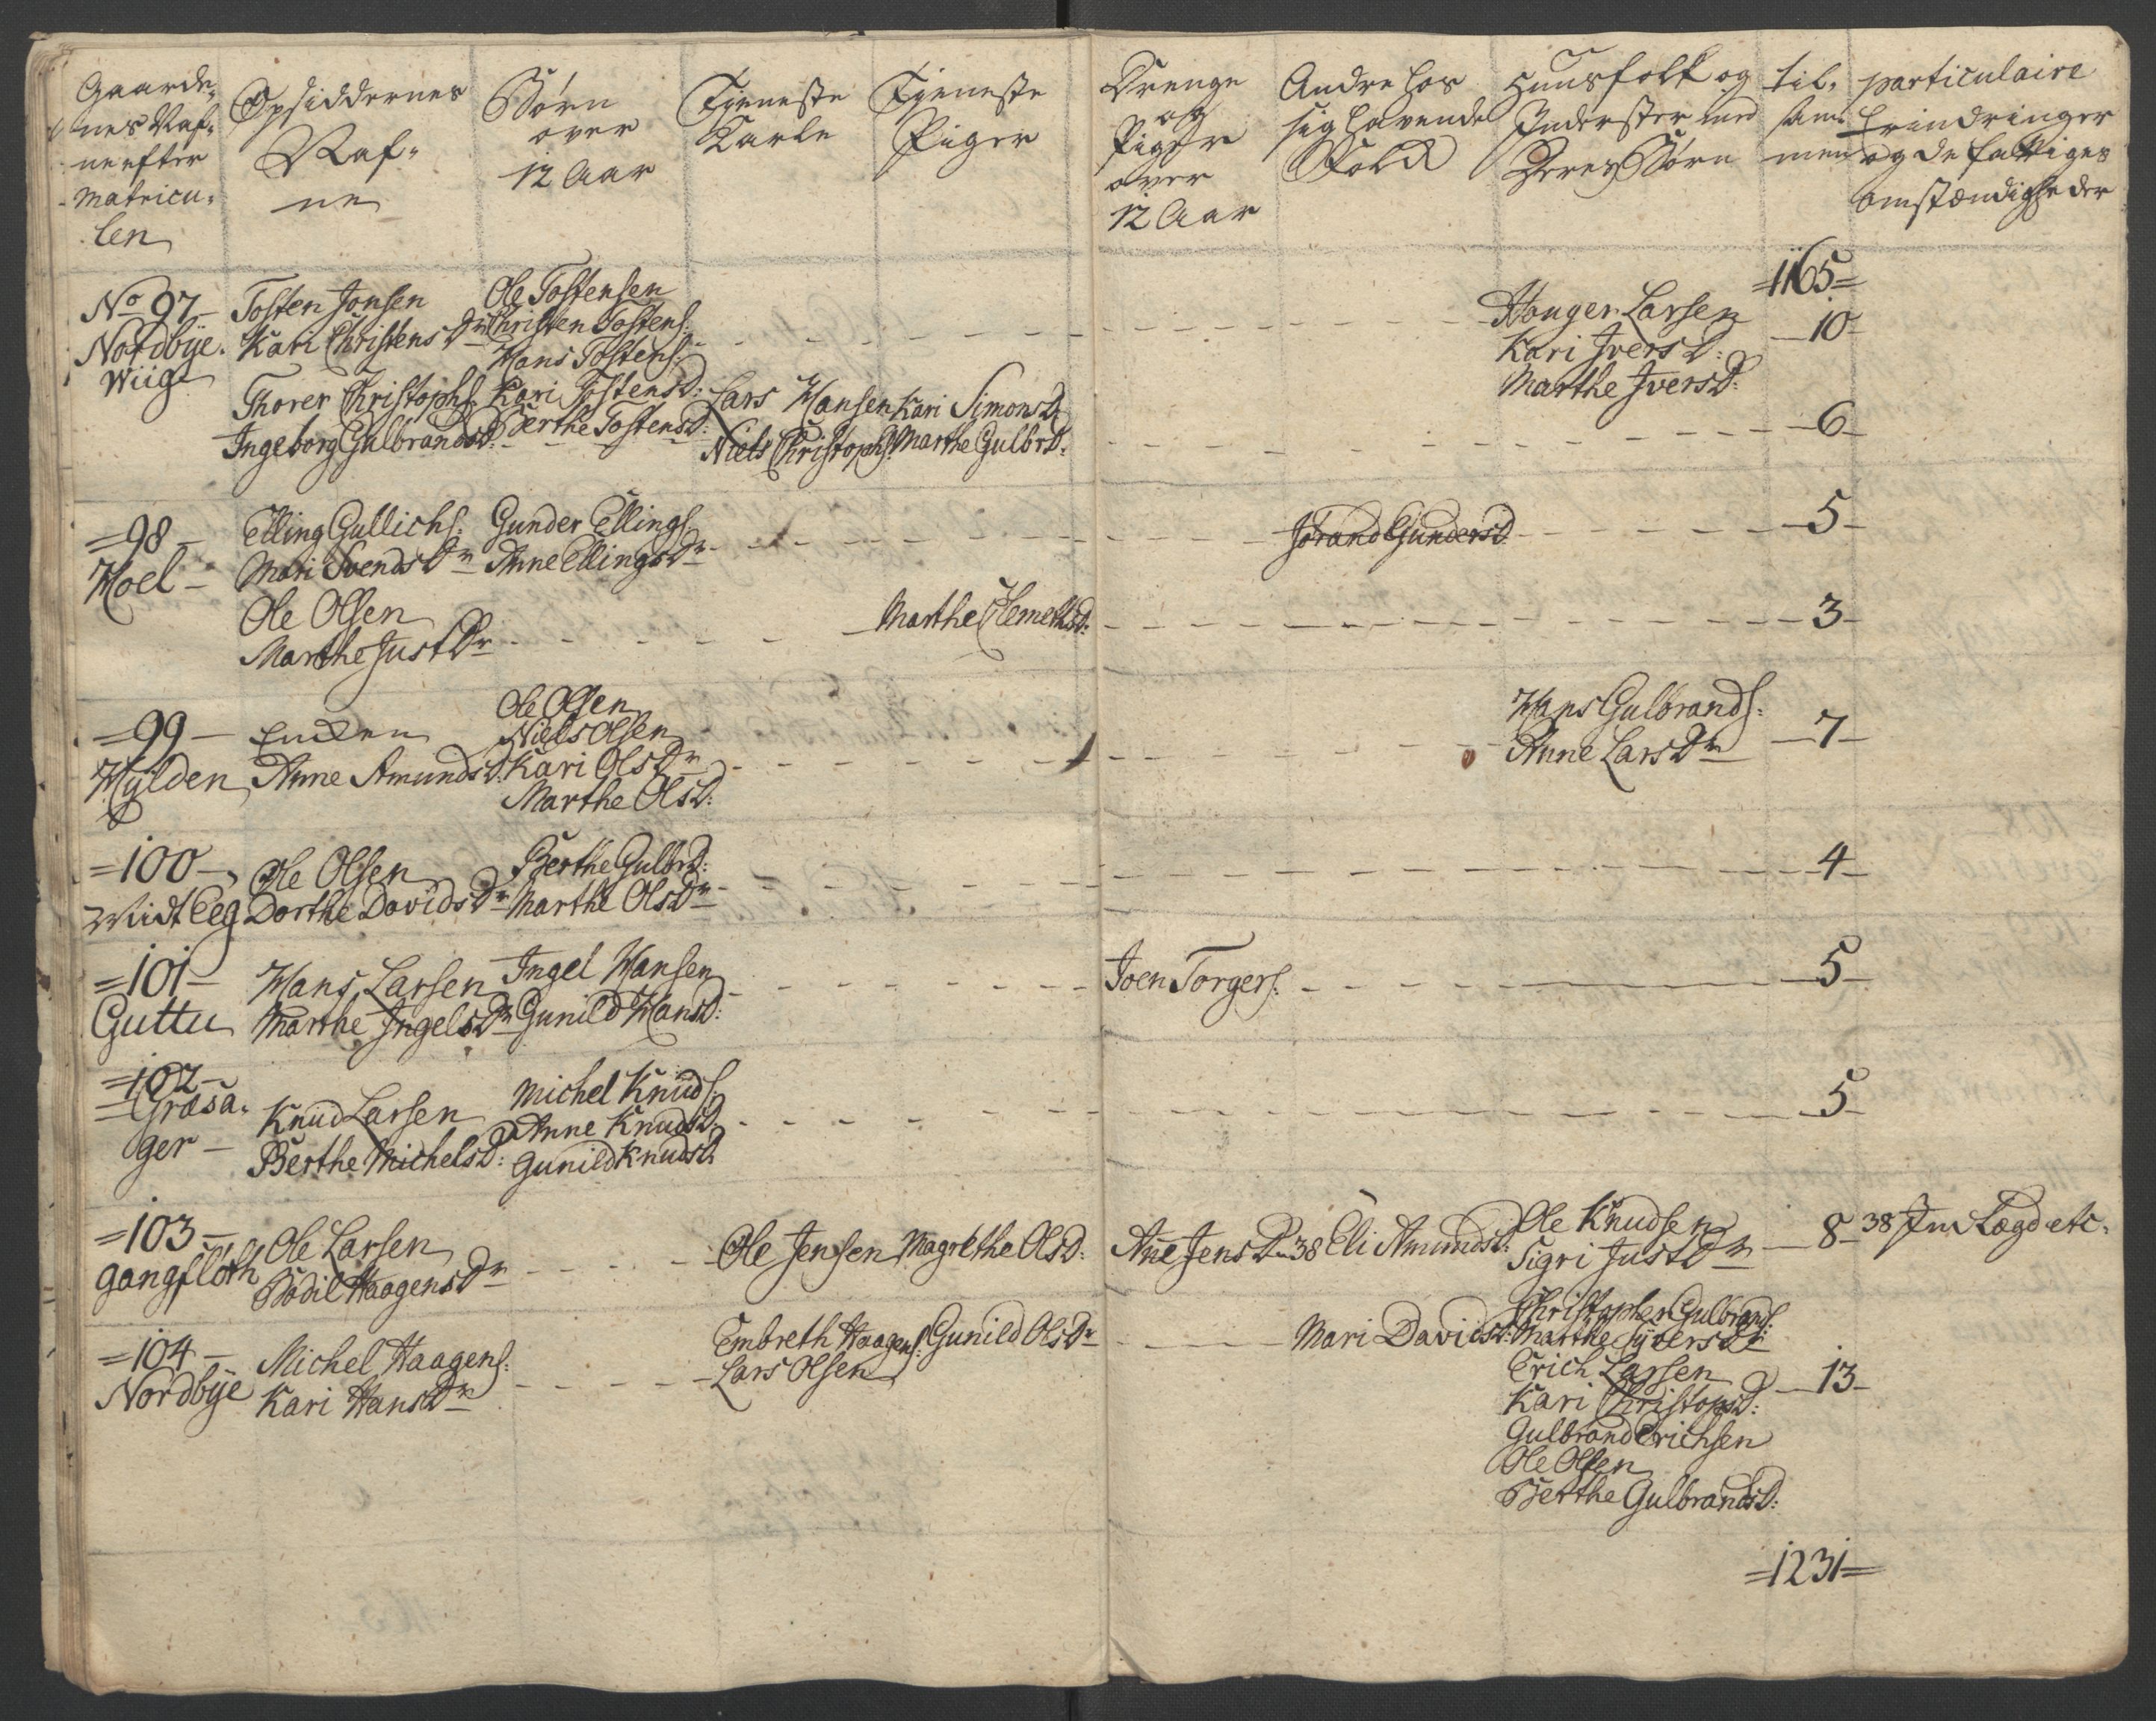 Gaarde-
nes Naf-
ne efter
Matricu-
len
Opsiddernes
Naf-
ne
Børn
over
12 Aar
Tjeneste
Karle
Tjeneste
Piger
Drenge
og
Piger
over
12 Aar
Andre hos
sig havende
Folck
Huusfolk og
Inderster med
Deres Børn
til-
sam-
men
particulaire
Erindringer
og de fattiges
omstændigheder
=1165=
No 97-
Nordbÿe.
Wiig-
Tosten Jonsen
Kari Christens Dr
Ole Tostensen
Christen Tostens:
Hans Tostens:
Kari Tostensd:
Berthe Tostensd:
Houger Larsen
Kari Iversd:
Marthe Iversd:
-10-
Thorer Christophs:
Ingeborg Gulbrandsd:
Lars Hansen
Niels Christophs:
Kari Simonsd:
Marthe Gulbrd:
-6-
=98-
Moel-
Elling Gullichs:
Mari Svends Dr
Gunder Ellings:
Anne Ellings Dr
Jorand Gundersd
-5-
Ole Olsen
Marthe Just Dr
Marthe Clemethsd:
-3-
=99-
Hÿlden
Encken
Anne Amundsd:
Ole Olsen
Niels Olsen
Kari Ols Dr
Marthe Olsd:
Hans Gulbrands:
Anne Lars Dr
-7-
=100-
Midt Eeg
Ole Olsen
Dorthe Davids Dr
Berthe Gulbrd:
Marthe Ols Dr
-4-
=101-
Guttu
Hans Larsen
Marthe Ingels Dr
Ingel Hansen
Gunild Hansd:
Joen Torgers:
-5-
=102-
=Græsa-
ger-
Knud Larsen
Berthe Michelsd:
Michel Knuds:
Anne Knudsd:
Gunild Knudsd:
-5-
=103-
Gangfloth
Ole Larsen
Bodil Haagens Dr
Ole Jensen
Magrethe Olsd:
Anne Jens Dr
38 Eli Amundsd:
Ole Knudsen
Sigri Just Dr
-8-
38 Im Lægd etc.
=104-
Nordbÿe
Michel Haagens:
Kari Hans Dr
Embreth Haagens:
Lars Olsen
Gunild Ols Dr
Mari Davidsd:
Christopher Gulbrands:
Marthe Syvers Dr
Erich Larsen
Kari Christopsd:
Gulbrand Erichsen
Ole Olsen
Berthe Gulbrandsd:
-13-
=1231=